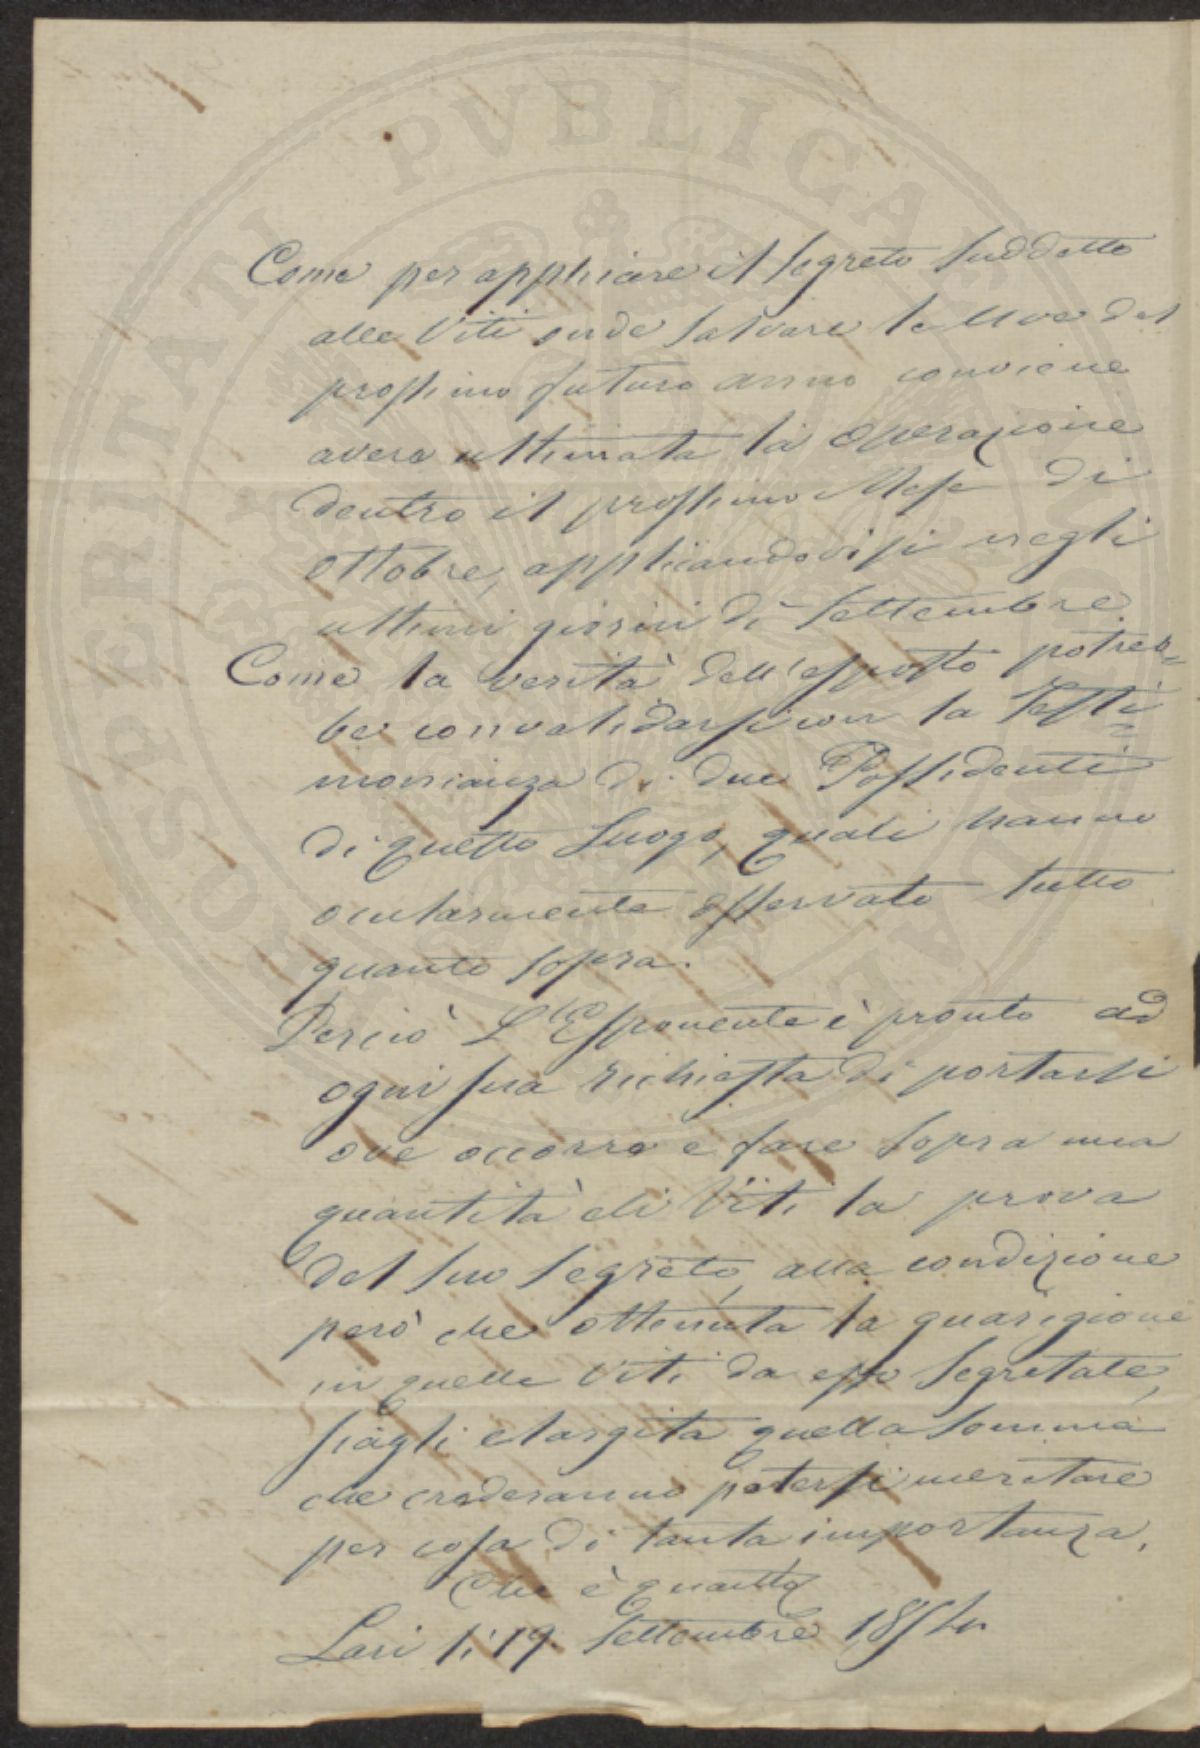 Come per applicare il Segreto Suddetto
alle Viti onde Salvare le Uve del
prossimo futuro anno conviene
avere ultimata la Operazione
dentro il prossimo Mese di
Ottobre, applicandovisi negli
ultimi giorni di Settembre
Come la verità dell'esposto potreb=
be convalidarsi con la Testi=
monianza di due Possidenti
di questo Luogo, quali hanno
ocularmente osservato tutto
quanto sopra.
Perciò L'Esponente è pronto ad
ogni sua richiesta di portarsi
ove occorre e fare sopra una
quantità di Viti la prova
del suo Segreto, alla condizione
però che ottenuta la guarigione
in quelle Viti da esso Segretate,
siagli elargita quella Somma
che crederanno potersi meritare
per cosa di tanta importanza.
Che è quanto
Lari li 19. Settembre
PROSPERITATI PVBLICAE